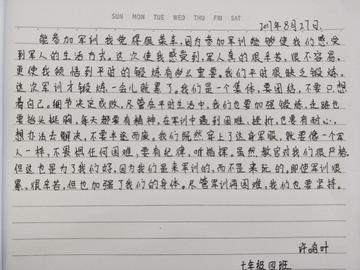 SUN MON TUE WED THU FRI SAT
2017年8月27日.
能参加军训我觉得很荣幸,因为参加军训能够使我们感受
到军人的生活方式。这次使我感受到军人真的很辛苦,很不容易,
更使我领悟到平时的锻炼有多么重要。我们平时很缺乏锻炼,
这次军训才锻炼一会儿就累了。我们是一个集体,要团结,不要只想
着自己。细节决定成败,尽管在平时生活中,我们也要加强锻炼,走路也
要抬头挺胸,每天都要有精神。在军训中遇到困难,挫折,也要有耐心,
想办法去解决,不要半途而废。我们既然穿上了这身军服,就要像一个军
人一样,不畏惧任何困难,要有纪律,听指挥。虽然教官对我们很严格,
但这也是为了我们好。因为我们是来军训的,而不是来玩的,即使军训很
累,很辛苦,但也加强了我们的身体。尽管军训再困难,我们也要坚持。
许鸣叶
七年级四班